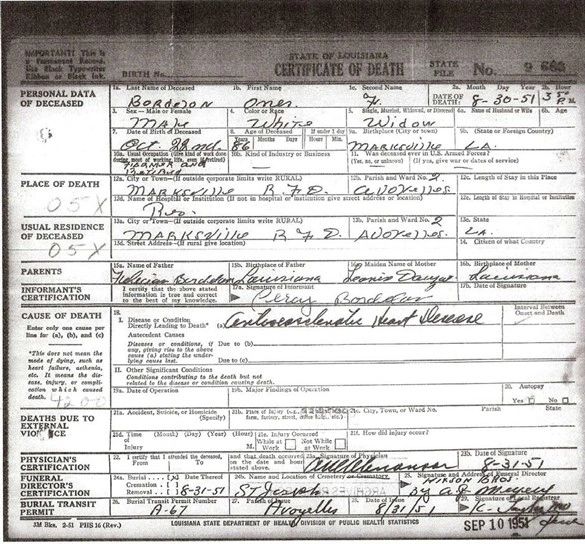 IMPORTANT! This is
a Permanent Record.
Use Black Typewriter
Ribbon or Black Ink.
STATE OF LOUISIANA
BIRTH No.
CERTIFICATE OF DEATH
STATE FILE No. 9
PERSONAL DATA OF DECEASED
1a. Last Name of Deceased
1b. First Name
1c. Second Name
2a. Month Day Year
2b. Hour
Bordelon
H.
DATE OF DEATH: 8-30-51
3 P M.
3. Sex—Male or Female
4. Color or Race
5. Single, Married, Widowed, or Divorced
6a. Name of Husband or Wife
6b. Age
Male White Widow
7. Date of Birth of Deceased
8. Age of Deceased
If under 1 day
9a. Birthplace (City or town)
9b. (State or Foreign Country)
Oct 22nd 86 Marksville La.
10a. Usual Occupation (Give kind of work done during most of working life, even if retired)
10b. Kind of Industry or Business
11. Was deceased ever in U.S. Armed Forces?
(Yes, no, or unknown) (If yes, give war or dates of service)
Farmer and
PLACE OF DEATH
12a. City or Town—(If outside corporate limits write RURAL)
12b. Parish and Ward No. 2
12c. Length of Stay in this Place
05X
Marksville R.F.D. Avoyelles
12d. Name of Hospital or Institution (If not in hospital or institution give street address or location)
12e. Length of Stay in Hospital or Institution
Res.
USUAL RESIDENCE OF DECEASED
13a. City or Town—(If outside corporate limits write RURAL)
13b. Parish and Ward No. 2
13c. State
05X
Marksville R.F.D. Avoyelles La.
13d. Street Address—(If rural give location)
14. Citizen of what Country
PARENTS
15a. Name of Father
15b. Birthplace of Father
16a. Maiden Name of Mother
16b. Birthplace of Mother
Bordelon Louisiana Louisiana
INFORMANT'S CERTIFICATION
I certify that the above stated information is true and correct to the best of my knowledge.
17a. Signature of Informant
17b. Date of Signature
Percy Bordelon
CAUSE OF DEATH
Enter only one cause per line for (a), (b), and (c)
18.
I. Disease or Condition Directly Leading to Death* (a)
Arteriosclerotic Heart Disease
Interval Between Onset and Death
Antecedent Causes
Diseases or conditions, if any, giving rise to the above cause (a) stating the underlying cause last.
Due to (b)
Due to (c)
*This does not mean the mode of dying, such as heart failure, asthenia, etc. It means the disease, injury, or complication which caused death.
4200
II. Other Significant Conditions
Conditions contributing to the death but not related to the disease or condition causing death.
19a. Date of Operation
19b. Major Findings of Operation
20. Autopsy
Yes No
DEATHS DUE TO EXTERNAL VIOLENCE
21a. Accident, Suicide, or Homicide (Specify)
21b. Place of Injury
21c. City, Town, or Ward No. Parish State
21d. Time (Month) (Day) (Year) (Hour) of Injury M.
21e. Injury Occurred
While at Work Not While at Work
21f. How did injury occur?
PHYSICIAN'S CERTIFICATION
22. I certify that I attended the deceased, From To
and that death occurred on the date and hour stated above.
23a. Signature of Physician
23b. Date of Signature
8-31-51
FUNERAL DIRECTOR'S CERTIFICATION
24a. Burial Cremation Removal
Date Thereof
8-31-51
24b. Name and Location of Cemetery or Crematory
St Joseph
25. Signature and Address of Funeral Director
Hixson Bros
BURIAL TRANSIT PERMIT
26. Burial Transit Permit Number
A-61
27. Parish of Issue
Avoyelles
28. Date of Issue
8/31/51
29. Signature of Local Registrar
3M Bks. 2-51 PHS 16 (Rev.)
LOUISIANA STATE DEPARTMENT OF HEALTH, DIVISION OF PUBLIC HEALTH STATISTICS
SEP 10 1951